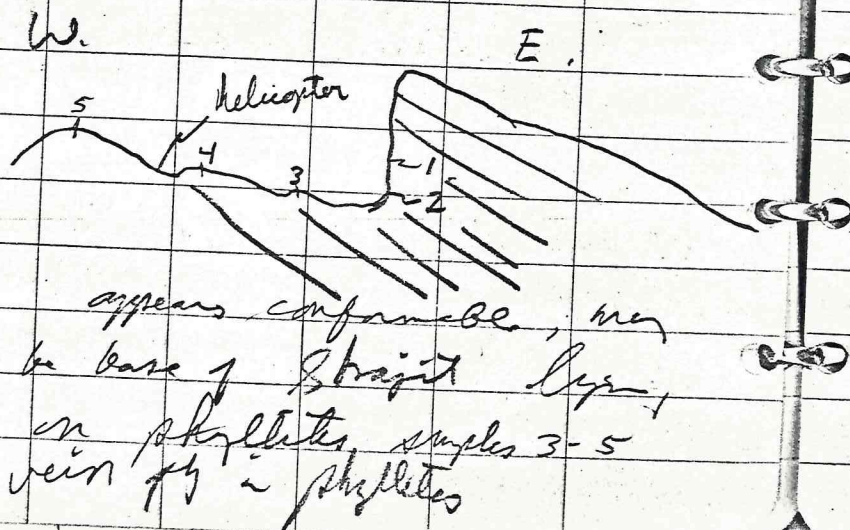 W.
E.
helicopter
5
4
3
1
2
appears conformable, may
be base of
on phyllites, samples 3-5
vein in phyllites